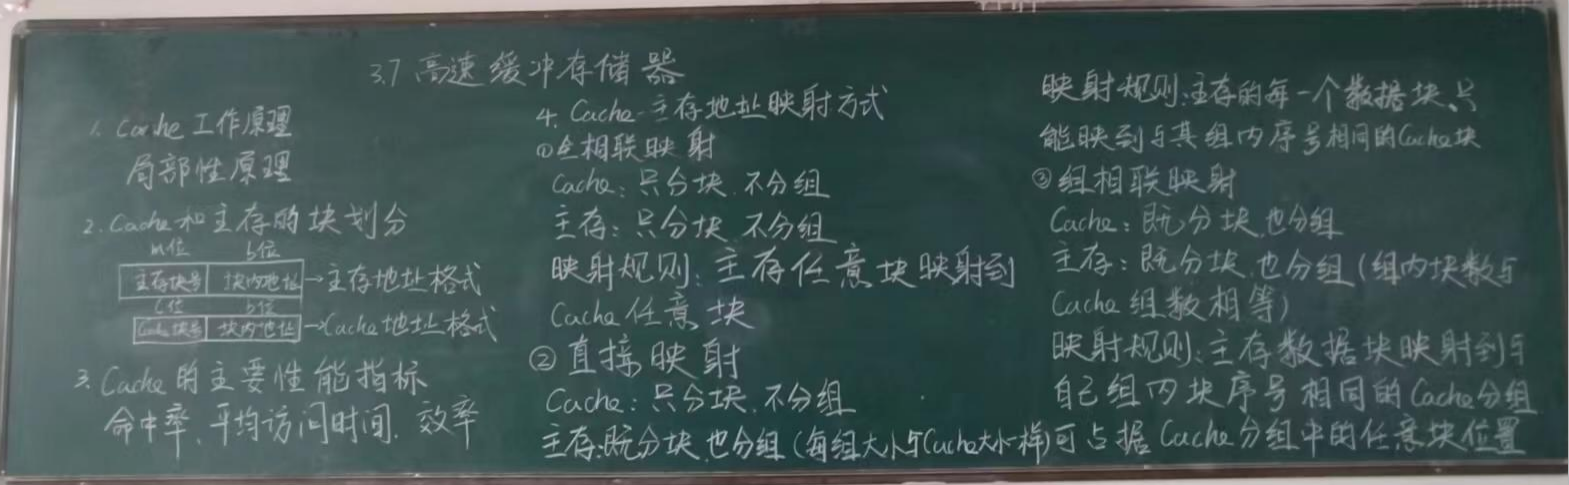 3.7 高速缓冲存储器
1. Cache工作原理
局部性原理
2. Cache和主存的块划分
m位 b位
主存块号 块内地址 →主存地址格式
c位 b位
Cache块号 块内地址 →Cache地址格式
3. Cache的主要性能指标
命中率、平均访问时间、效率
4. Cache-主存地址映射方式
①全相联映射
Cache：只分块、不分组
主存：只分块、不分组
映射规则：主存任意块映射到
Cache任意块
②直接映射
Cache：只分块、不分组
主存：既分块、也分组（每组大小与Cache大小一样）
映射规则：主存的每一个数据块、只
能映到与其组内序号相同的Cache块
③组相联映射
Cache：既分块、也分组
主存：既分块、也分组（组内块数与
Cache组数相等）
映射规则：主存数据块映射到与
自己组内块序号相同的Cache分组
可占据Cache分组中的任意块位置